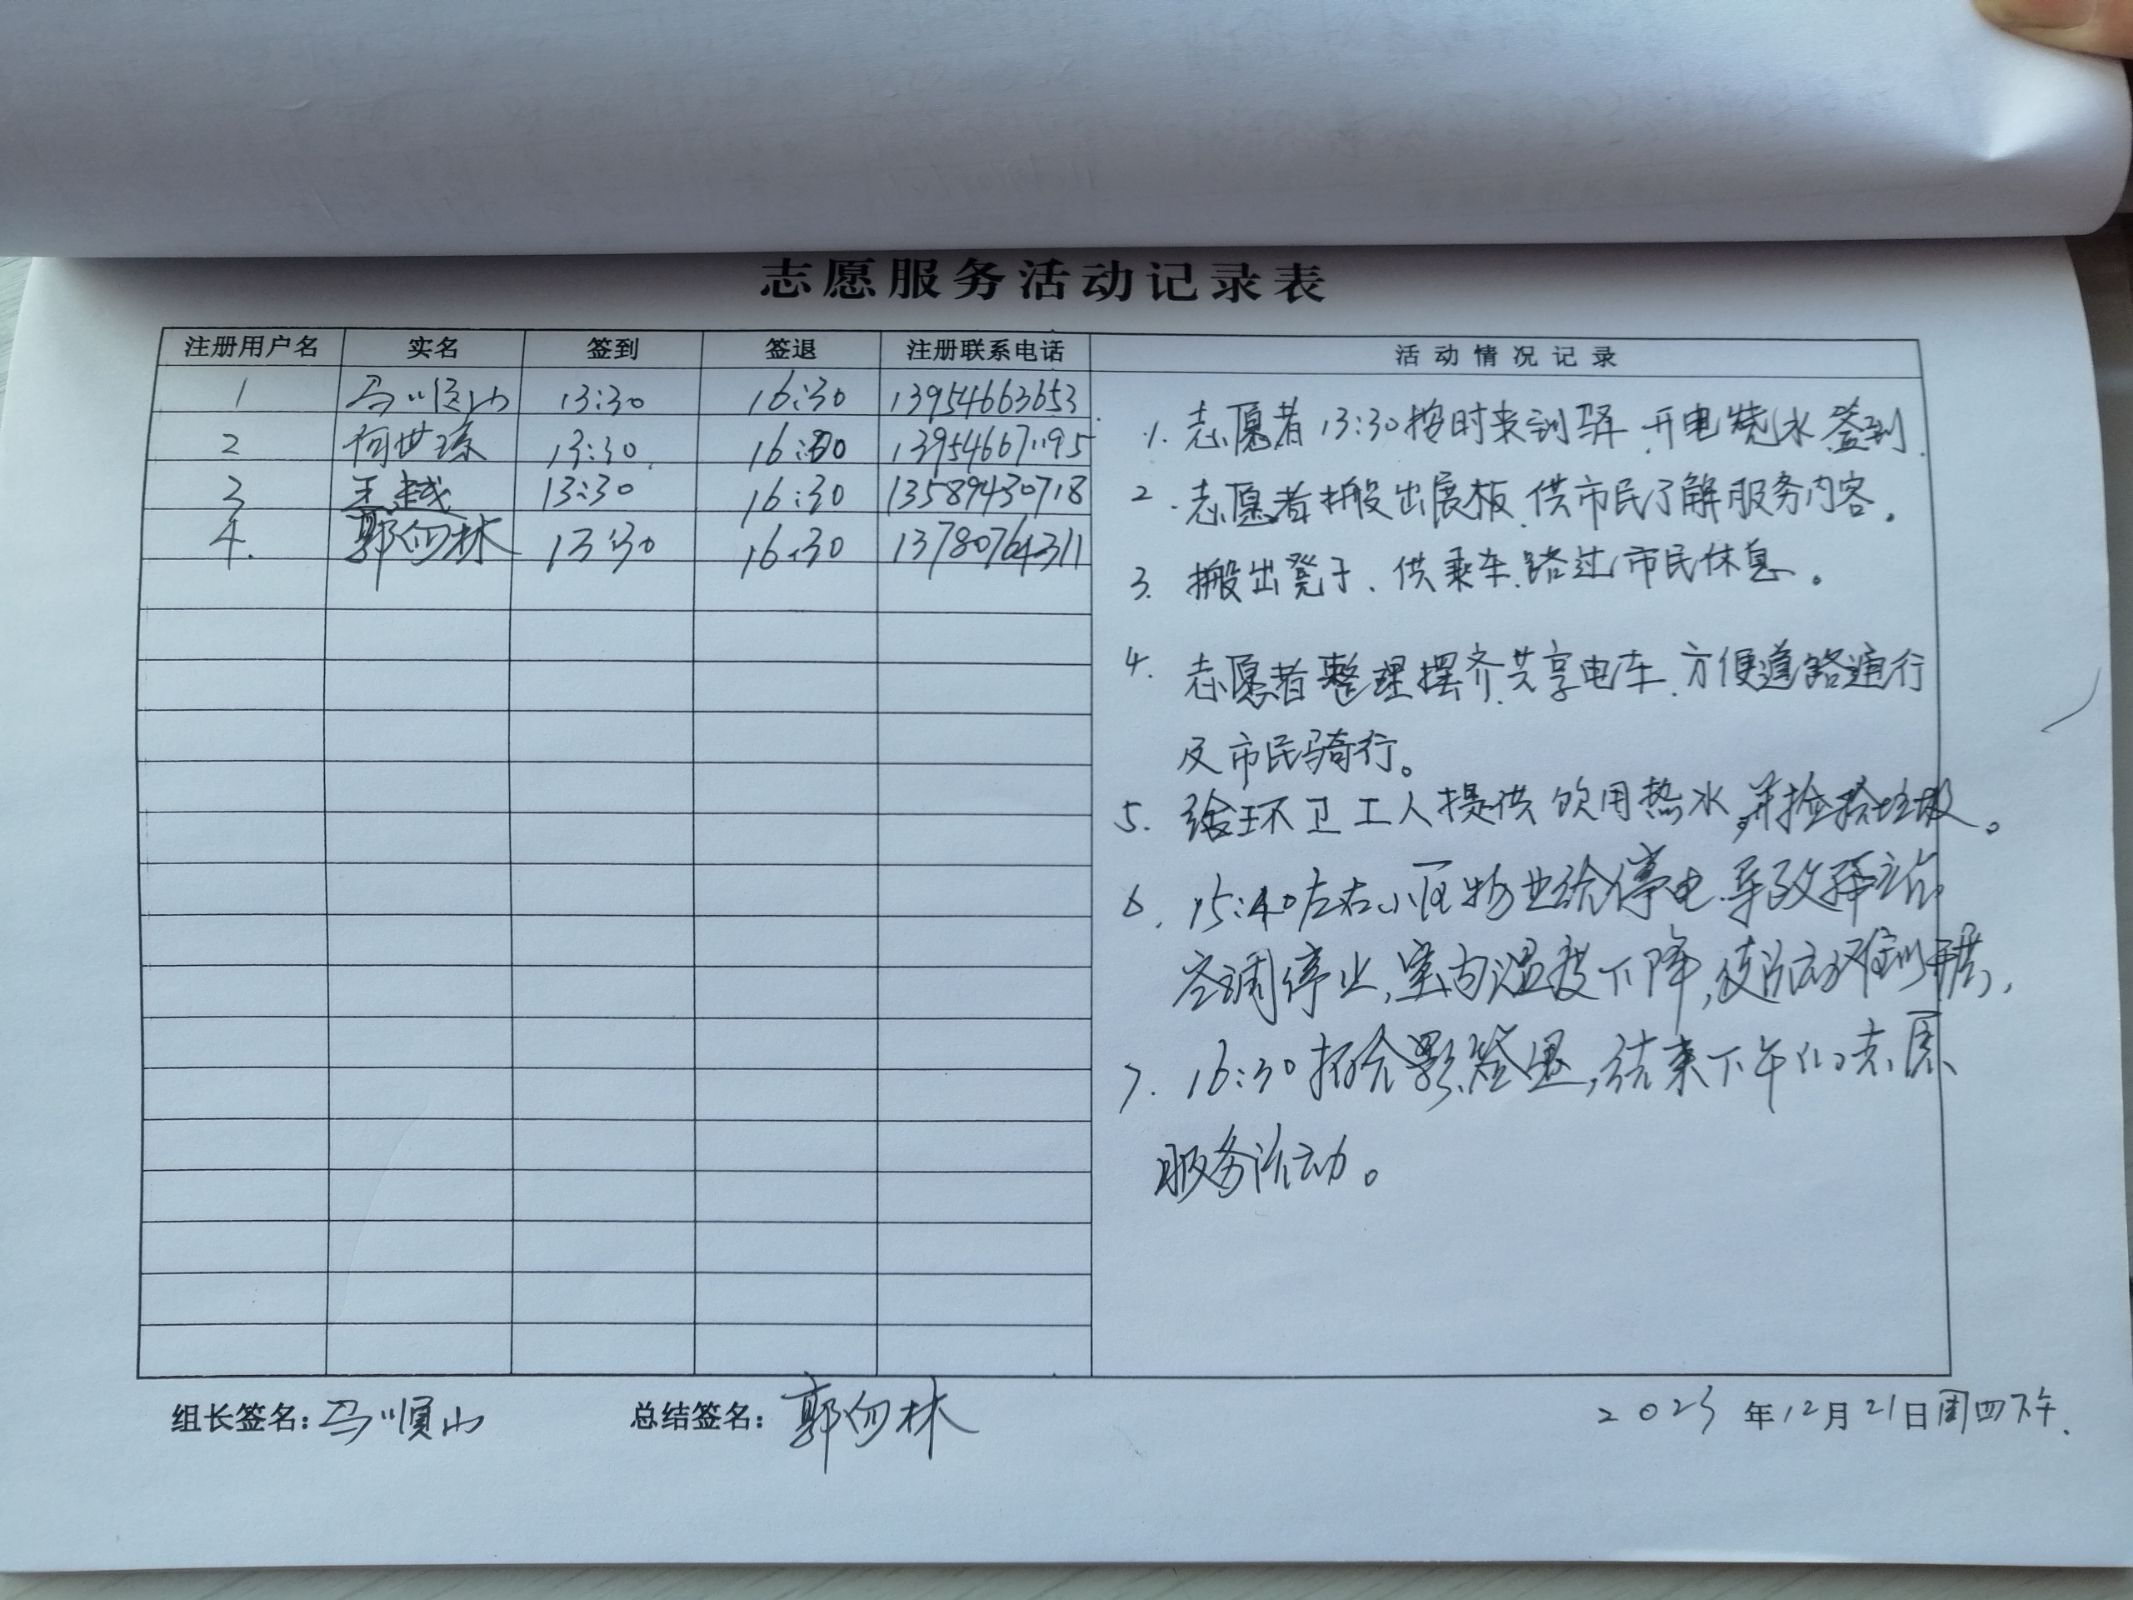 志愿服务活动记录表
注册用户名 实名 签到 签退 注册联系电话 活动情况记录
1 马顺山 13:30 16:30 13954663653
2 何世 13:30 16:30 13954667195
3 王越 13:30 16:30 13589430718
4. 郭向林 13:30 16:30 13780764311
1. 志愿者13:30按时来到驿,开电烧水签到.
2. 志愿者搬出展板,供市民了解服务内容。
3. 搬出凳子、供乘车、路过市民休息。
4. 志愿者整理摆齐共享电车,方便道路通行
及市民骑行。
5. 给环卫工人提供饮用热水,并捡拾垃圾。
6. 15:40左右小区物业给停电.导致驿站
空调停止,室内温度下降,使活动难到开展,
7. 16:30拍合影签退,结束下午的志愿
服务活动。
组长签名:马顺山 总结签名:郭向林 2023年12月21日周四下午.